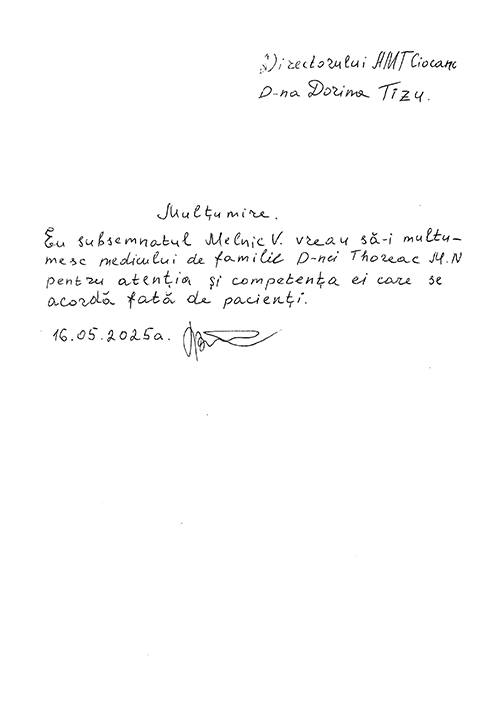 Directorului AMT Ciocana
D-na Dorina Tizu.
Mulțumire.
Eu subsemnatul Melnic V. vreau să-i multu-
mesc medicului de familie D-nei Thoreac M.N
pentru atenția și competența ei care se
acordă fată de pacienți.
16.05.2025a.